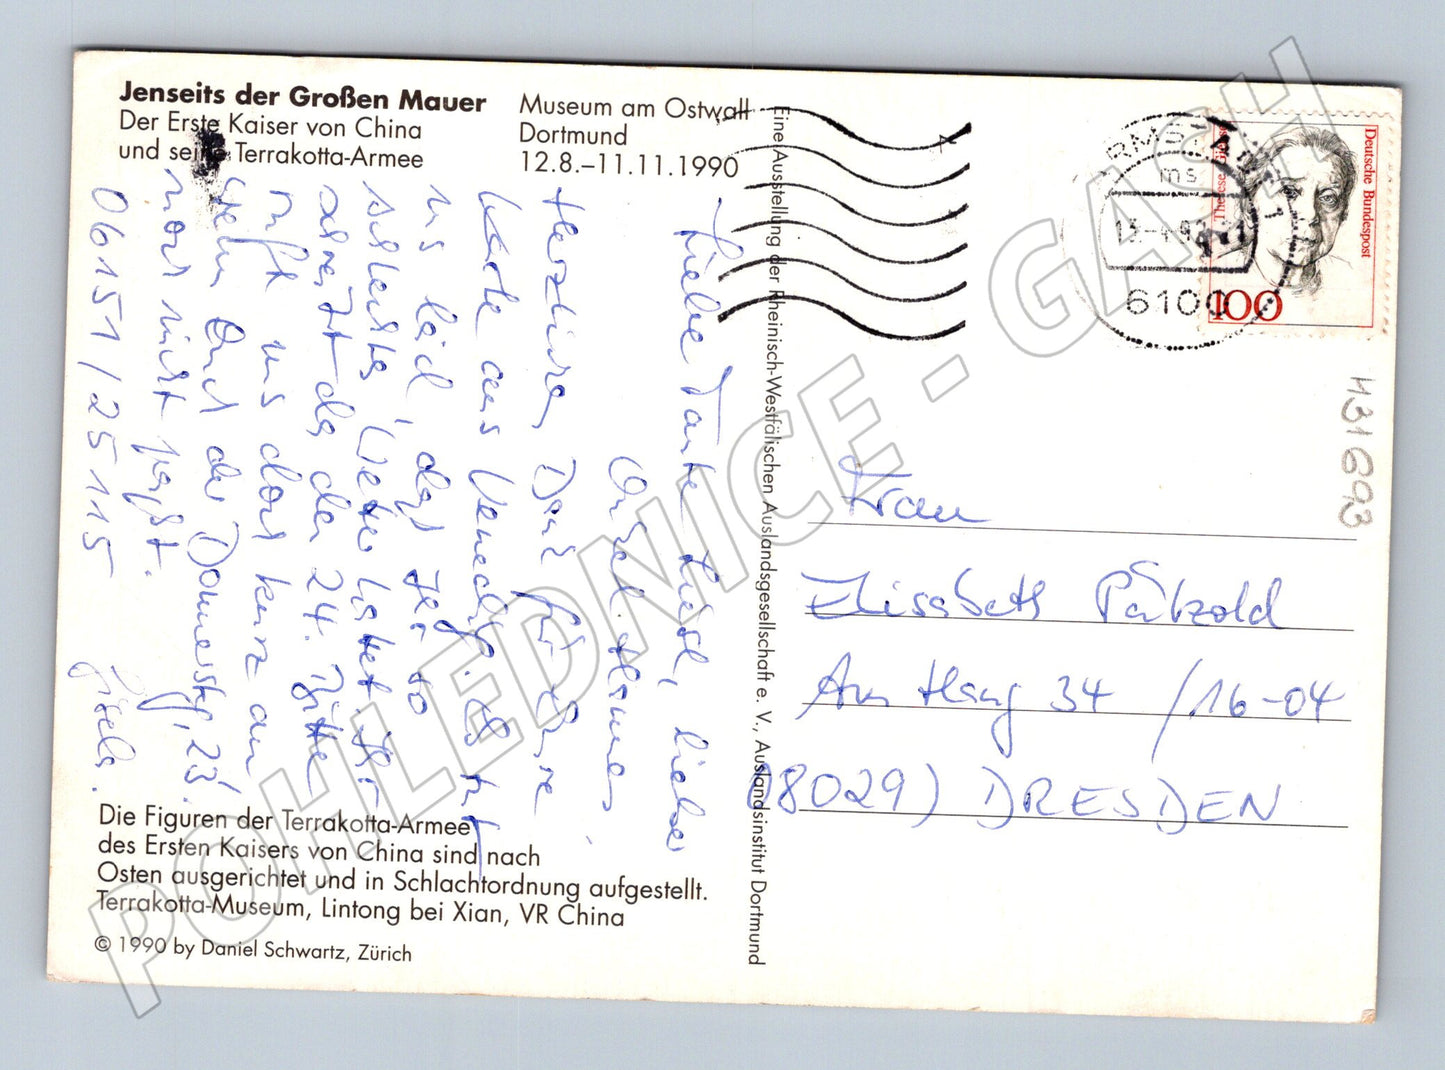 Jenseits der Großen Mauer
Der Erste Kaiser von China
und seine Terrakotta-Armee
Museum am Ostwall
Dortmund
12.8.–11.11.1990
Eine Ausstellung der Rheinisch-Westfälischen Auslandsgesellschaft e. V., Auslandsinstitut Dortmund
Deutsche Bundespost
Therese
100
ms
6100
431693
Liebe Tante Liesl, lieber
Onkel
Herzlichen Dank für Ihre
Karte aus Venedig. Es tut
uns leid, daß Ihr so
schlechtes Wetter hattet. Ihr
schreibt der 24. Bitte
ruft uns doch kurz an
wenn der Donnerstag, 23.
noch nicht paßt.
06151/25115
Gisela.
Frau
Elisabeth Pätzold
Am Hang 34 /16-04
(8029) DRESDEN
Die Figuren der Terrakotta-Armee
des Ersten Kaisers von China sind nach
Osten ausgerichtet und in Schlachtordnung aufgestellt.
Terrakotta-Museum, Lintong bei Xian, VR China
© 1990 by Daniel Schwartz, Zürich
POHLEDNICE - GASH